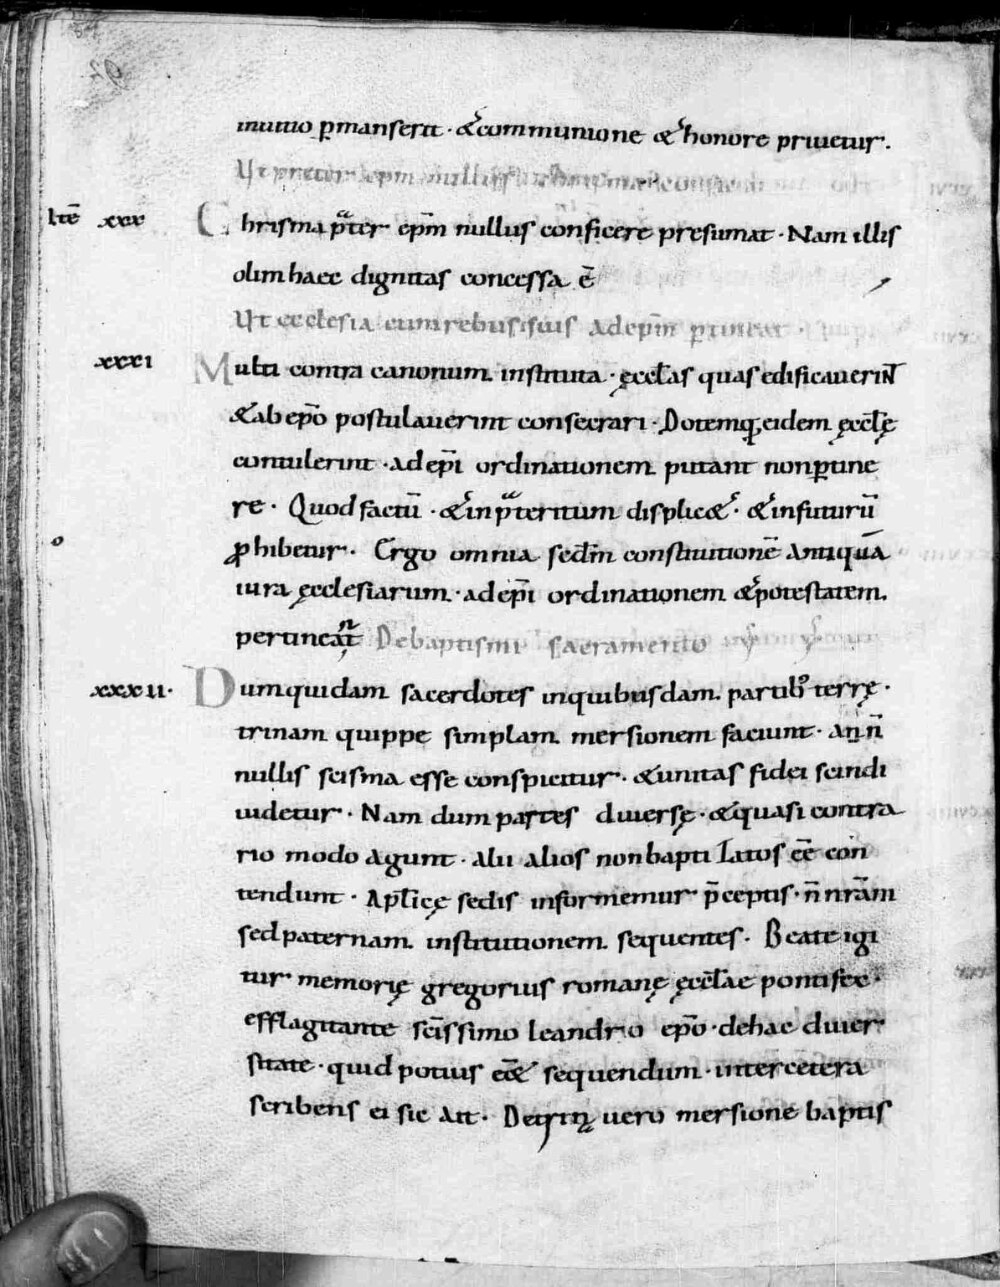 inuitio p̄manserit · &communione & honore priuetur.
Ut preter epm̄ nullus
ltē xxx Chrisma p̄ter ep̄m nullus conficere presumat · Nam illis
olim haec dignitas concessa ē
Ut ecclesia cum rebus suis ad ep̄m ꝑtineat
xxxi Multi contra canonum instituta · ęccl̄as quas edificauerint̄
&ab ep̄o postulauerint consecrari · Dotemq; eidem ęccl̄ę
contulerint · ad ep̄i ordinationem putant non ꝑtine
re · Quod factū · & in p̄teritum displic& · & in futurū
ꝓhibetur · Ergo omnia sedm̄ constitutionē antiquā
iura ęcclesiarum · ad ep̄i ordinationem &potestatem
pertineant De baptismi sacramento
xxxii · Dum quidam sacerdotes in quibusdam partib; terrę ·
trinam quippe simplam mersionem faciunt · a nn̄
nullis scisma esse conspicitur · &unitas fidei scindi
uidetur · Nam dum partes diuersę · &quasi contra
rio modo agunt · alii alios non bapti zatos eē con
tendunt · Apl̄icę sedis informemur p̄ceptis · n̄ nr̄am
sed paternam institutionem sequentes · Beate igi
tur memorię gregorius romanę ęccl̄ae pontifex ·
efflagitante sc̄issimo leandrio ep̄o · de hac diuer
sitate · quid potius eē& sequendum · inter cetera
scribens ei sic ait · De trinę uero mersione baptis